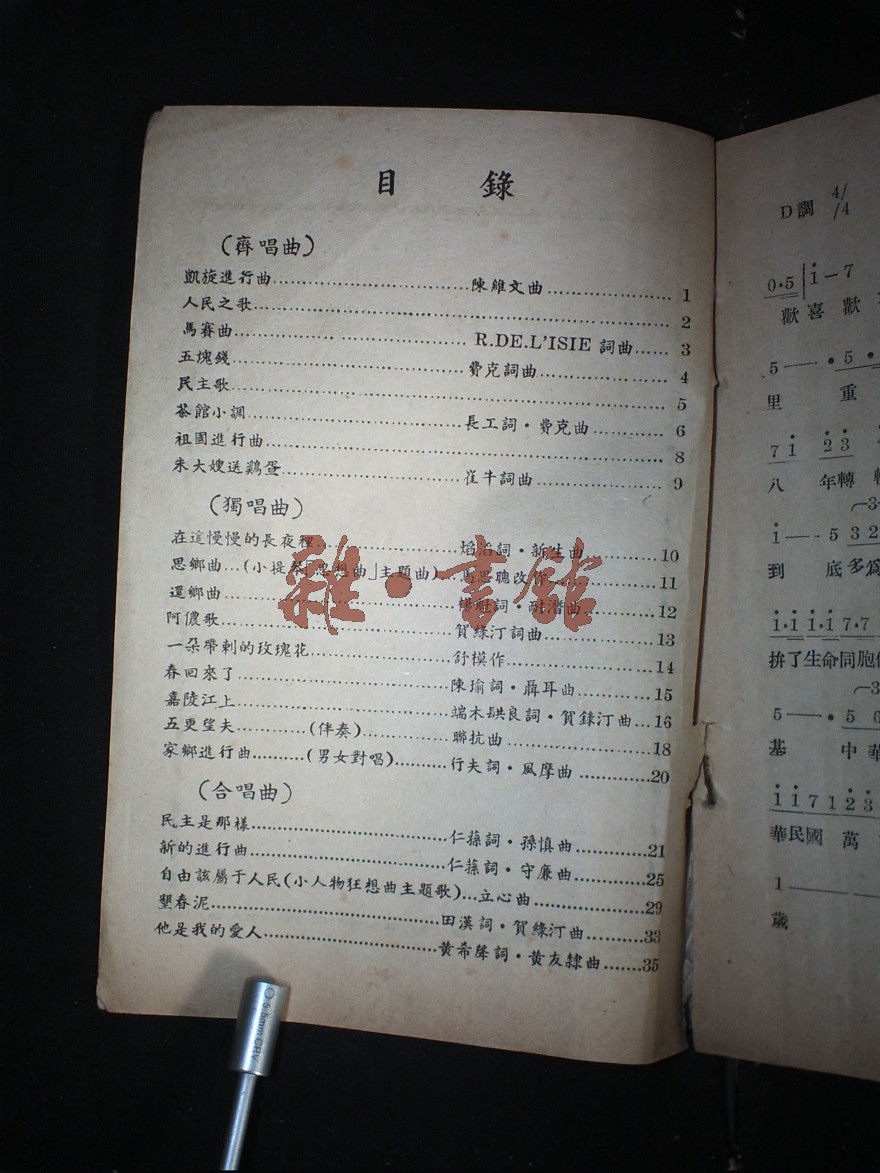 目 錄
(齊唱曲)
凱旋進行曲……陳維文曲……1
人民之歌……2
馬賽曲……R.DE.L'ISIE 詞曲……3
五塊錢……費克詞曲……4
民主歌……5
茶館小調……長工詞·費克曲……6
祖國進行曲……8
朱大嫂送鷄蛋……崔牛詞曲……9
(獨唱曲)
在這慢慢的長夜裡……焰滔詞·新生曲……10
思鄉曲…(小提琴「思想曲」主題曲)…馬思聰改作……11
還鄉曲……詞·曲……12
阿儂歌……賀綠汀詞曲……13
一朶帶刺的玫瑰花……舒模作……14
春回來了……陳瑜詞·聶耳曲……15
嘉陵江上……端木㙟良詞·賀錄汀曲…16
五更望夫……(伴奏)……聯抗曲……18
家鄉進行曲……(男女對唱)……行夫詞·風摩曲……20
(合唱曲)
民主是那樣……仁蓀詞·孫慎曲……21
新的進行曲……仁蓀詞·守廉曲……25
自由該屬于人民(小人物狂想曲主題歌)…立心曲……29
墾春泥……田漢詞·賀綠汀曲……33
他是我的愛人……黃希聲詞·黃友隸曲……35
雜·書館
D調 4/4
0·5 | i - 7
歡 喜 歡
5 — · 5 ·
里 重
7 1 2 3
八 年 轉
i — - 5 3 2
到 底 多 爲
i·i i·i 7·7
拚了生命同胞
5 — · 5 6
基 中 華
i i 7 1 2 3
華民國 萬
1 —
歲
5.5mm CRV